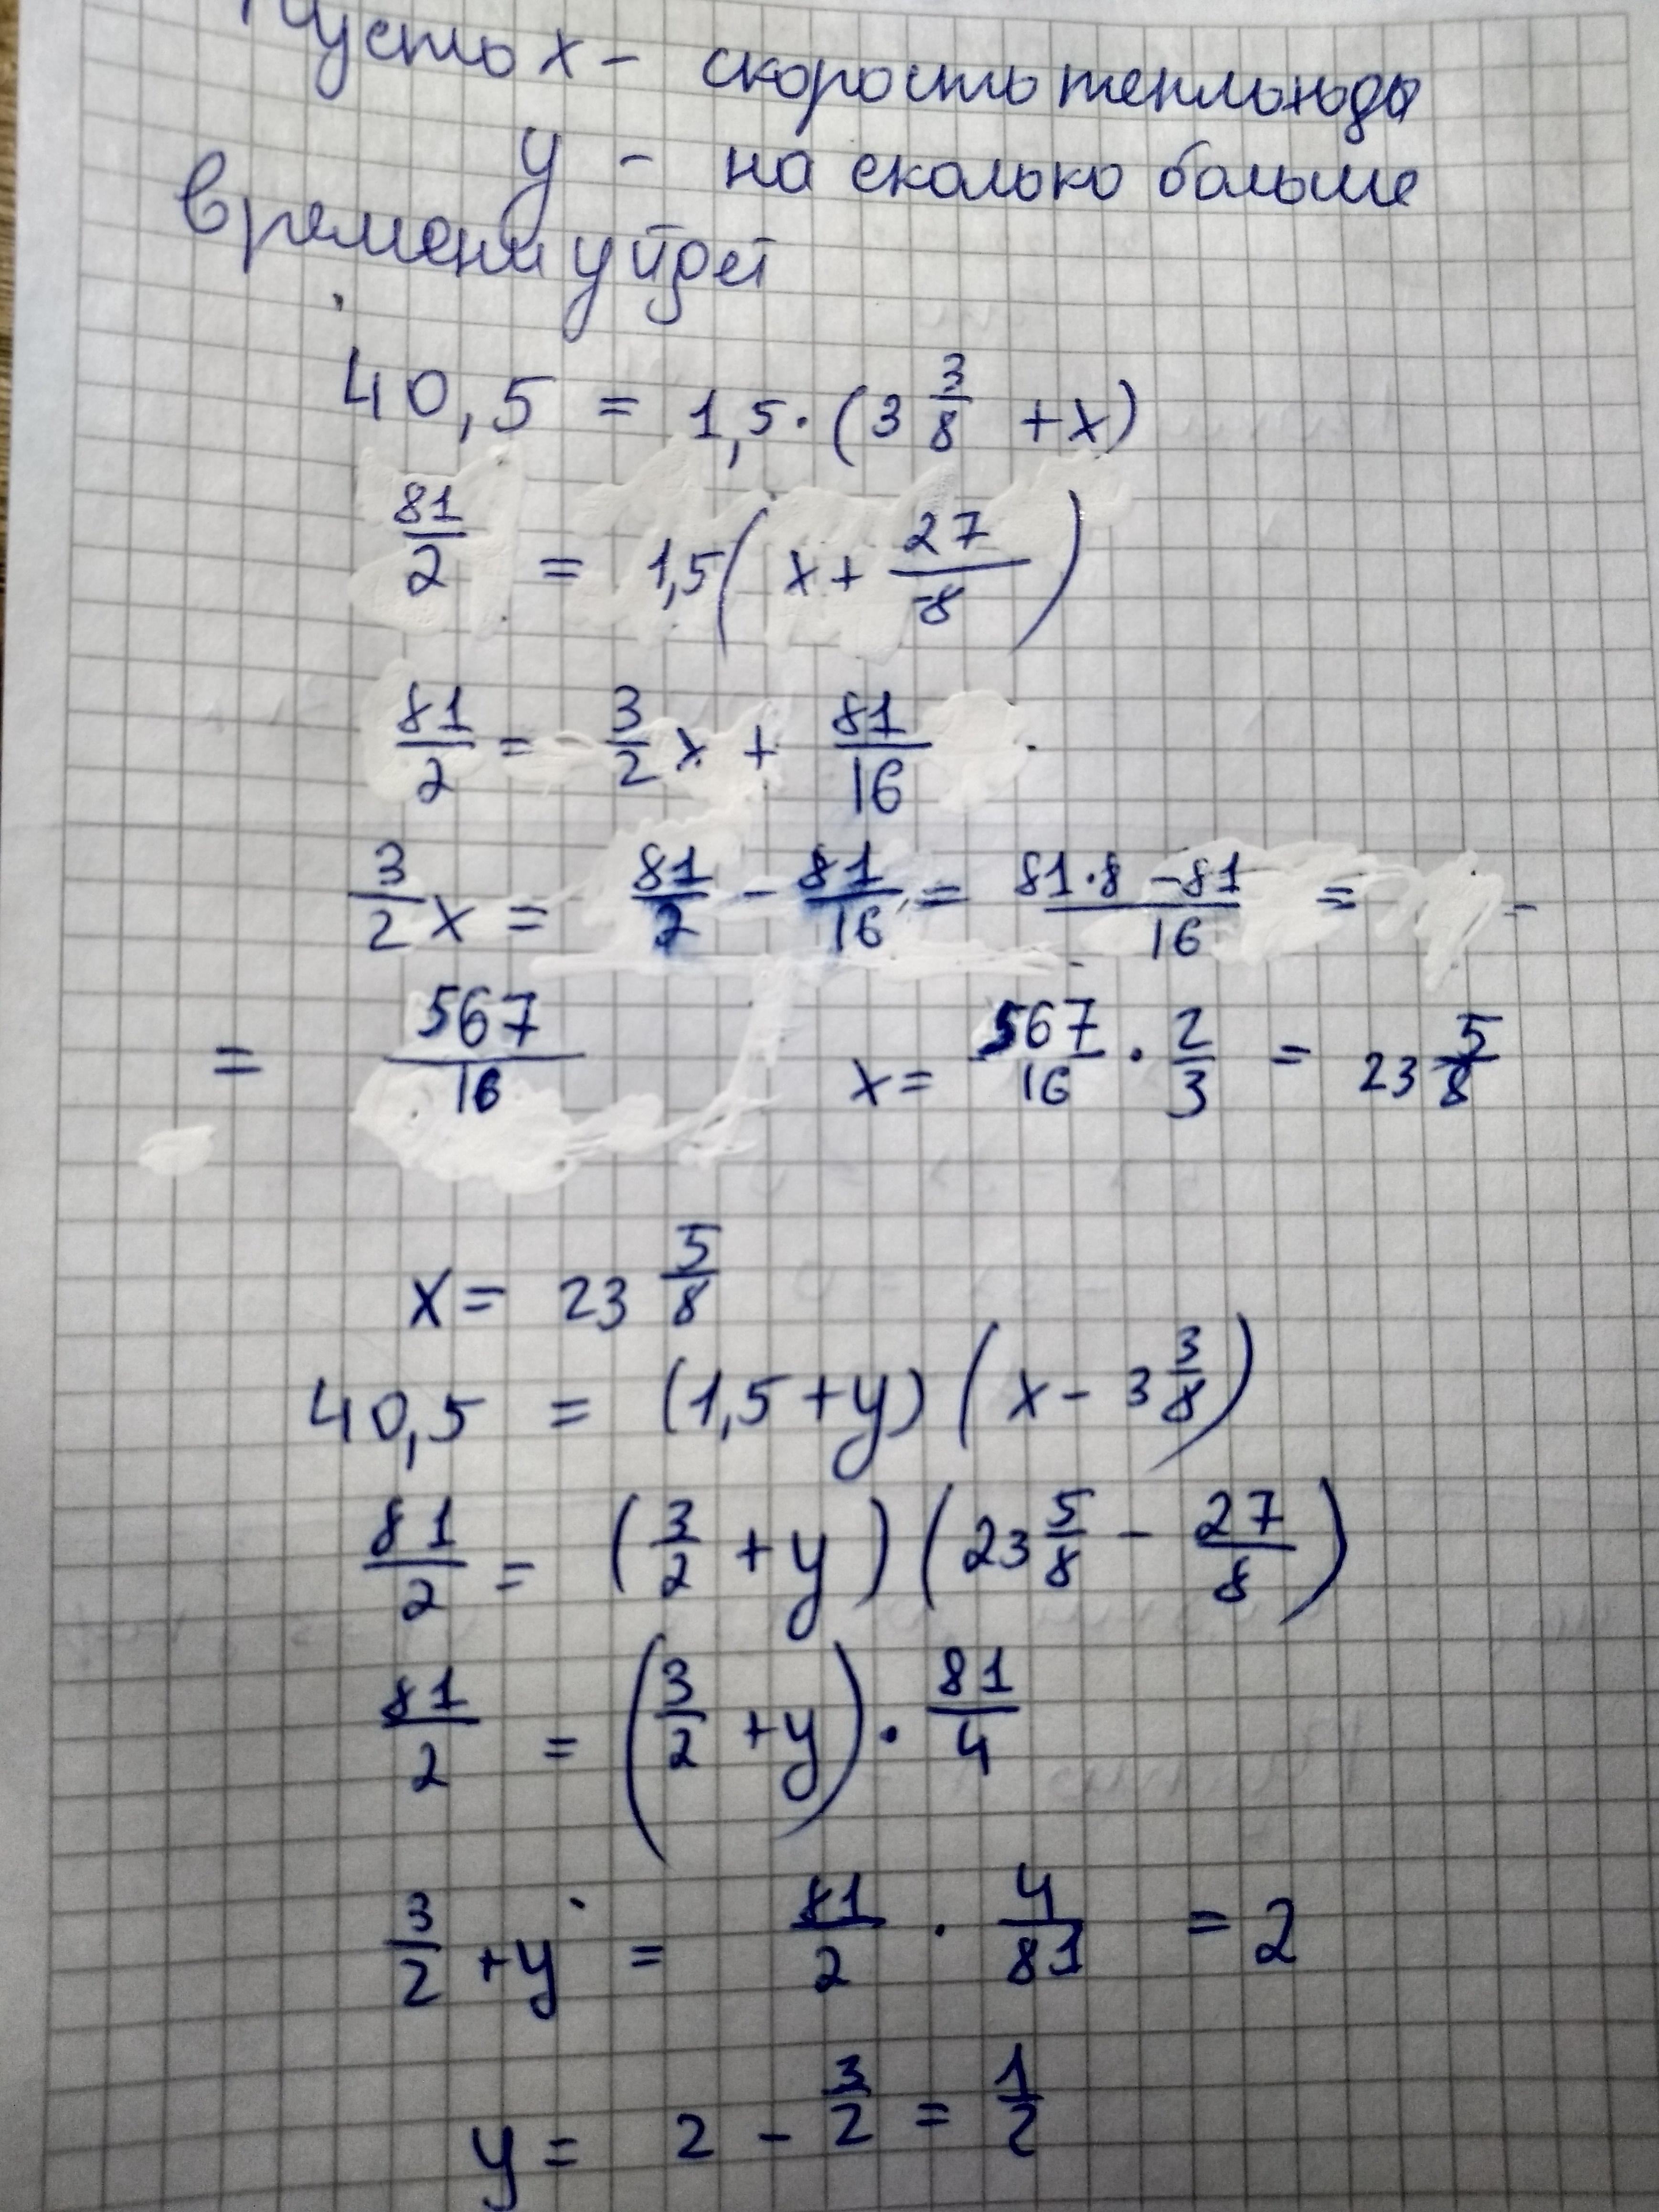 Пусть x - скорость теплохода
y - на сколько больше
времени уйдет
40,5 = 1,5 · (3 3/8 + x)
81/2 = 1,5 (x + 27/8)
81/2 = 3/2 x + 81/16
3/2 x = 81/2 - 81/16 = (81·8 - 81)/16 =
= 567/16 x = 567/16 · 2/3 = 23 5/8
x = 23 5/8
40,5 = (1,5 + y) (x - 3 3/8)
81/2 = (3/2 + y) (23 5/8 - 27/8)
81/2 = (3/2 + y) · 81/4
3/2 + y = 81/2 · 4/81 = 2
y = 2 - 3/2 = 1/2